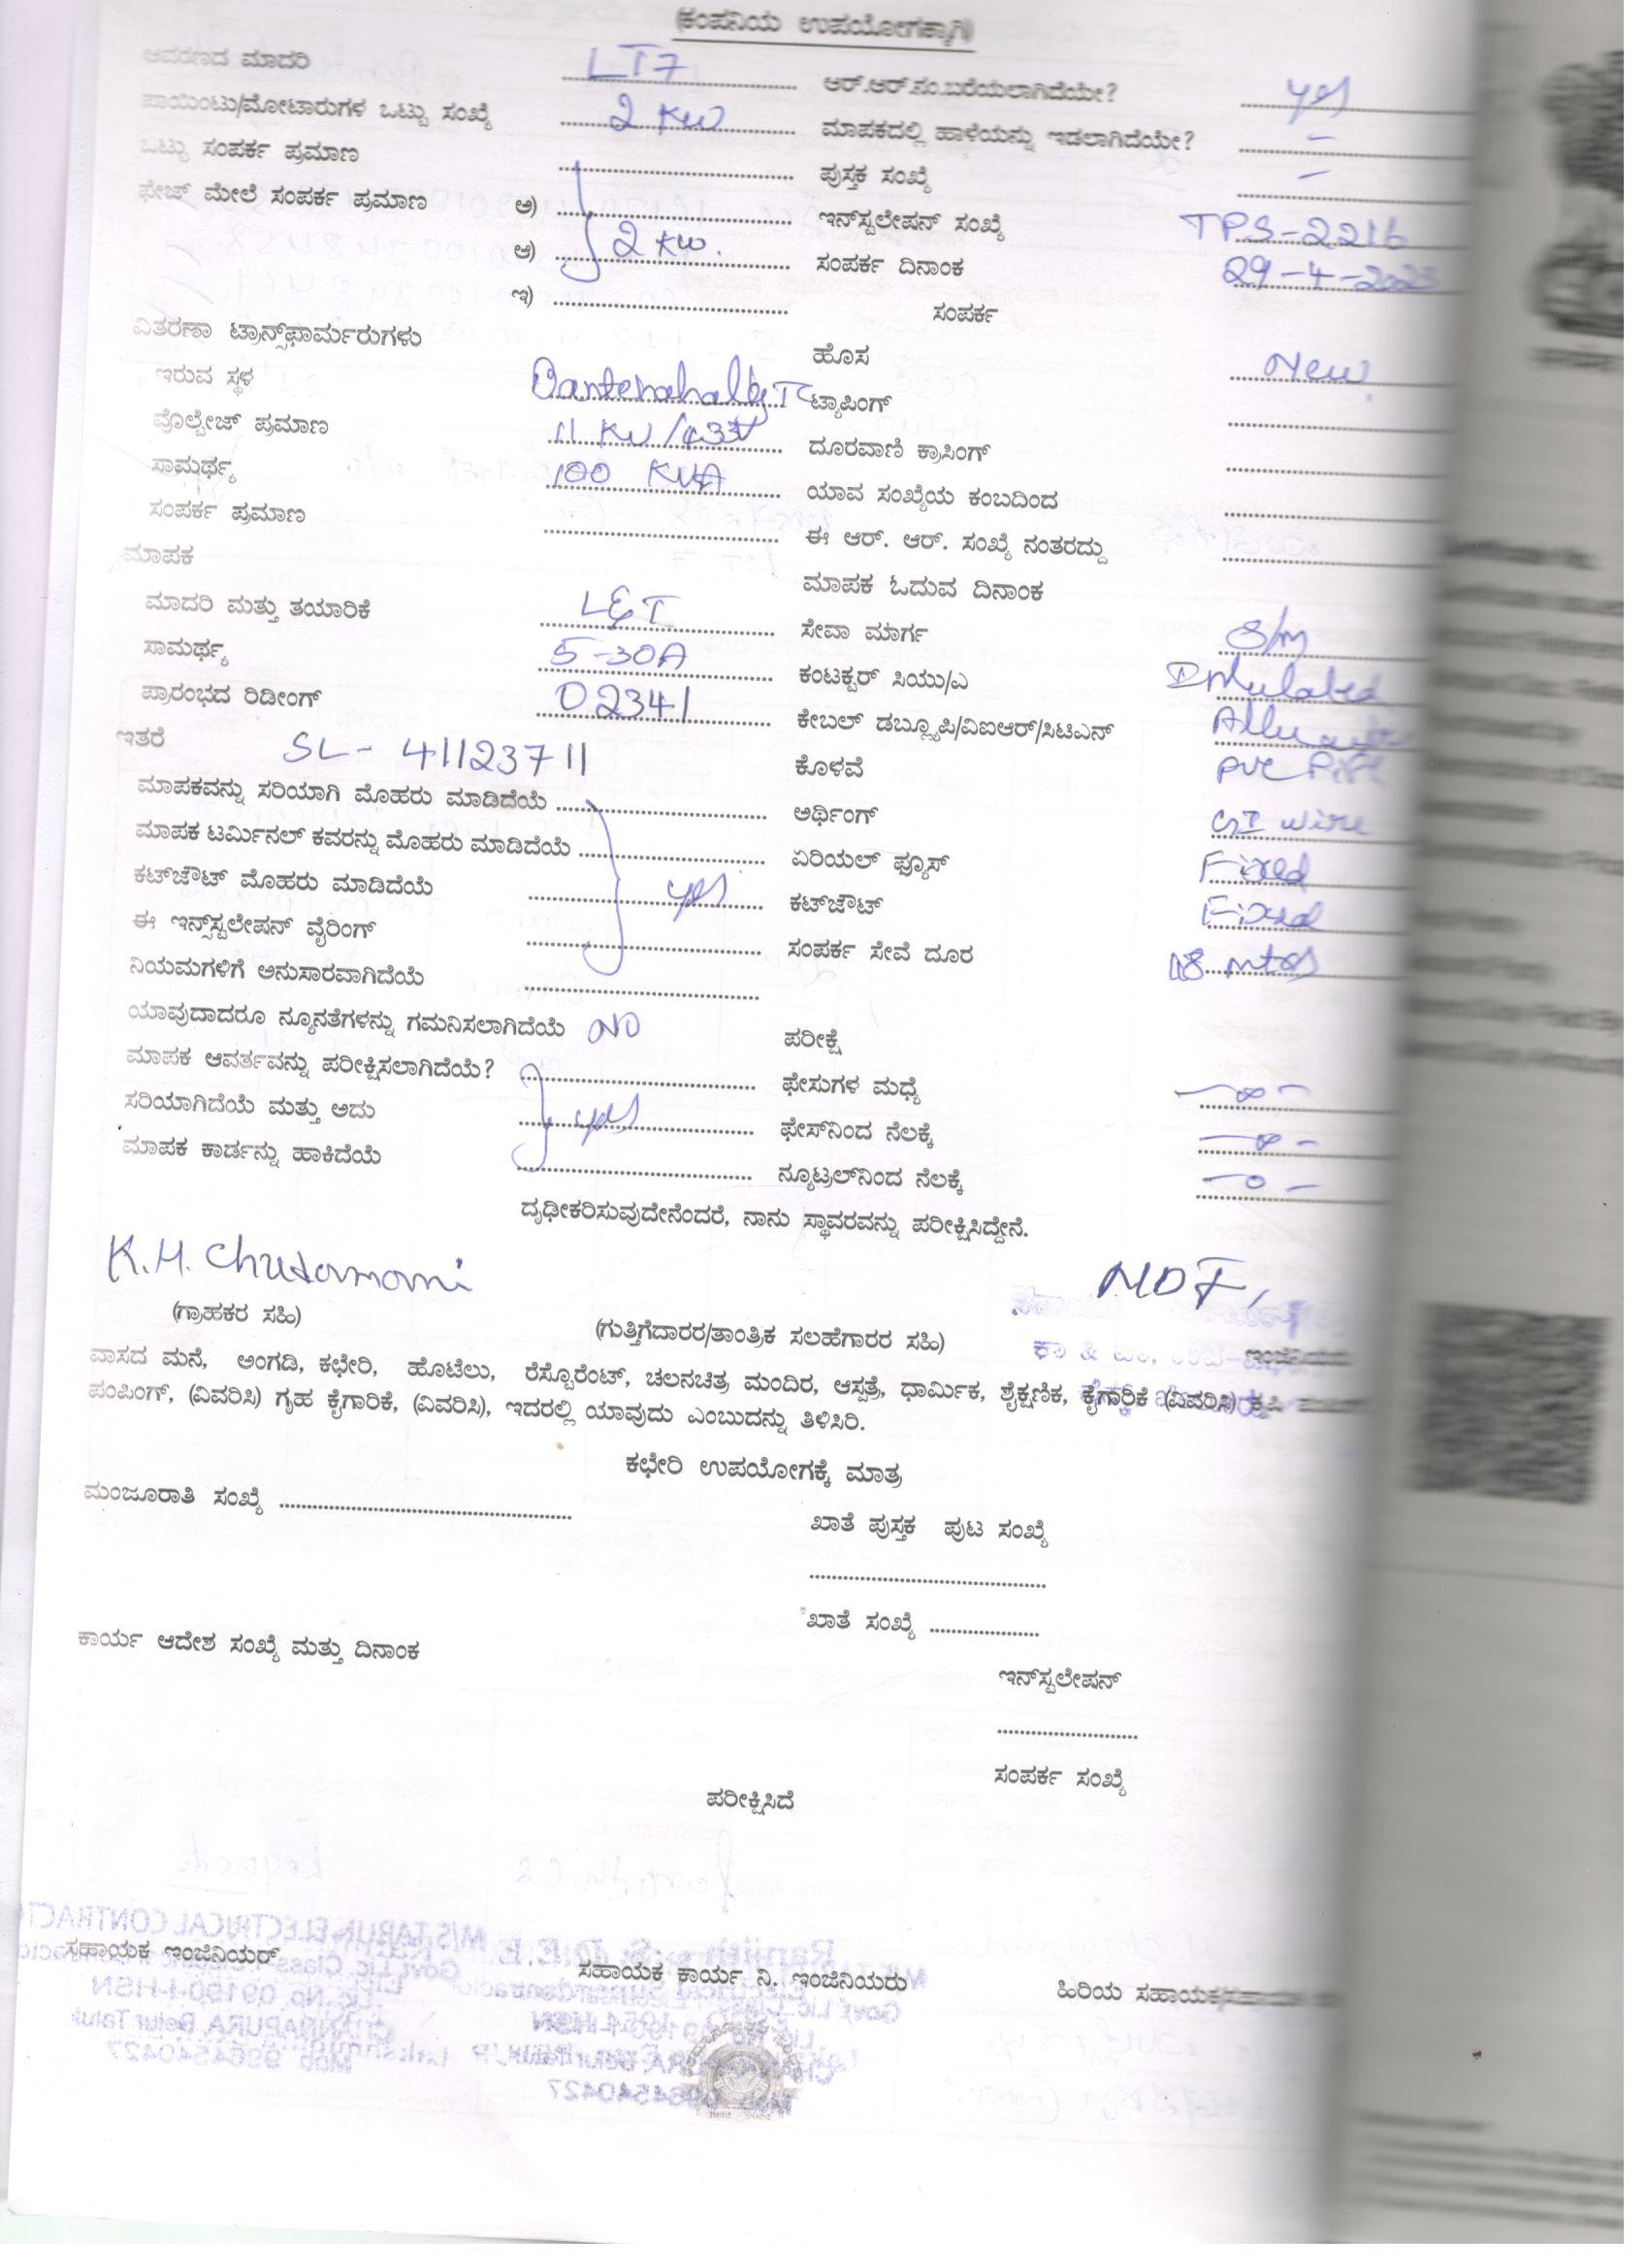 (ಕಂಪನಿಯ ಉಪಯೋಗಕ್ಕಾಗಿ)
ಆವರಣದ ಮಾದರಿ LT7 ಆರ್.ಆರ್.ನಂ.ಬರೆಯಲಾಗಿದೆಯೇ? yes
ಪಾಯಿಂಟು/ಮೋಟಾರುಗಳ ಒಟ್ಟು ಸಂಖ್ಯೆ 2 KW ಮಾಪಕದಲ್ಲಿ ಹಾಳೆಯನ್ನು ಇಡಲಾಗಿದೆಯೇ? –
ಒಟ್ಟು ಸಂಪರ್ಕ ಪ್ರಮಾಣ ಪುಸ್ತಕ ಸಂಖ್ಯೆ –
ಫೇಜ್ ಮೇಲೆ ಸಂಪರ್ಕ ಪ್ರಮಾಣ ಅ) ಇನ್‌ಸ್ಟಲೇಷನ್ ಸಂಖ್ಯೆ TPS-2216
ಆ) 2 KW. ಸಂಪರ್ಕ ದಿನಾಂಕ 29-4-2023
ಇ) ಸಂಪರ್ಕ
ವಿತರಣಾ ಟ್ರಾನ್ಸ್‌ಫಾರ್ಮರುಗಳು ಹೊಸ New
ಇರುವ ಸ್ಥಳ TC ಟ್ಯಾಪಿಂಗ್
ವೊಲ್ಟೇಜ್ ಪ್ರಮಾಣ 11 KV/433V ದೂರವಾಣಿ ಕ್ರಾಸಿಂಗ್
ಸಾಮರ್ಥ್ಯ 100 KVA ಯಾವ ಸಂಖ್ಯೆಯ ಕಂಬದಿಂದ
ಸಂಪರ್ಕ ಪ್ರಮಾಣ ಈ ಆರ್. ಆರ್. ಸಂಖ್ಯೆ ನಂತರದ್ದು
ಮಾಪಕ ಮಾಪಕ ಓದುವ ದಿನಾಂಕ
ಮಾದರಿ ಮತ್ತು ತಯಾರಿಕೆ L&T ಸೇವಾ ಮಾರ್ಗ S/m
ಸಾಮರ್ಥ್ಯ 5-30A ಕಂಟಕ್ಟರ್ ಸಿಯು/ಎ
ಪ್ರಾರಂಭದ ರಿಡೀಂಗ್ 02341 ಕೇಬಲ್ ಡಬ್ಲ್ಯೂಪಿ/ವಿಐಆರ್/ಸಿಟಿಎನ್
ಇತರೆ SL- 41123711 ಕೊಳವೆ PVC Pipe
ಮಾಪಕವನ್ನು ಸರಿಯಾಗಿ ಮೊಹರು ಮಾಡಿದೆಯೆ ಅರ್ಥಿಂಗ್ GI wire
ಮಾಪಕ ಟರ್ಮಿನಲ್ ಕವರನ್ನು ಮೊಹರು ಮಾಡಿದೆಯೆ ಏರಿಯಲ್ ಫ್ಯೂಸ್ Fixed
ಕಟ್‌ಔಟ್ ಮೊಹರು ಮಾಡಿದೆಯೆ yes ಕಟ್‌ಔಟ್ Fixed
ಈ ಇನ್ಸ್‌ಸ್ಟಲೇಷನ್ ವೈರಿಂಗ್ ಸಂಪರ್ಕ ಸೇವೆ ದೂರ 18 mtrs
ನಿಯಮಗಳಿಗೆ ಅನುಸಾರವಾಗಿದೆಯೆ
ಯಾವುದಾದರೂ ನ್ಯೂನತೆಗಳನ್ನು ಗಮನಿಸಲಾಗಿದೆಯೆ NO ಪರೀಕ್ಷೆ
ಮಾಪಕ ಆವರ್ತವನ್ನು ಪರೀಕ್ಷಿಸಲಾಗಿದೆಯೆ? ಫೇಸುಗಳ ಮಧ್ಯೆ –∞–
ಸರಿಯಾಗಿದೆಯೆ ಮತ್ತು ಅದು yes ಫೇಸ್‌ನಿಂದ ನೆಲಕ್ಕೆ –∞–
ಮಾಪಕ ಕಾರ್ಡನ್ನು ಹಾಕಿದೆಯೆ ನ್ಯೂಟ್ರಲ್‌ನಿಂದ ನೆಲಕ್ಕೆ –0–
ದೃಢೀಕರಿಸುವುದೇನೆಂದರೆ, ನಾನು ಸ್ಥಾವರವನ್ನು ಪರೀಕ್ಷಿಸಿದ್ದೇನೆ.
K.H.
(ಗ್ರಾಹಕರ ಸಹಿ) (ಗುತ್ತಿಗೆದಾರರ/ತಾಂತ್ರಿಕ ಸಲಹೆಗಾರರ ಸಹಿ)
ವಾಸದ ಮನೆ, ಅಂಗಡಿ, ಕಛೇರಿ, ಹೊಟೆಲು, ರೆಸ್ಟೊರೆಂಟ್, ಚಲನಚಿತ್ರ ಮಂದಿರ, ಆಸ್ಪತ್ರೆ, ಧಾರ್ಮಿಕ, ಶೈಕ್ಷಣಿಕ, ಕೈಗಾರಿಕೆ (ವಿವರಿಸಿ) ಕೃಷಿ
ಪಂಪಿಂಗ್, (ವಿವರಿಸಿ) ಗೃಹ ಕೈಗಾರಿಕೆ, (ವಿವರಿಸಿ), ಇದರಲ್ಲಿ ಯಾವುದು ಎಂಬುದನ್ನು ತಿಳಿಸಿರಿ.
ಕಛೇರಿ ಉಪಯೋಗಕ್ಕೆ ಮಾತ್ರ
ಮಂಜೂರಾತಿ ಸಂಖ್ಯೆ
ಖಾತೆ ಪುಸ್ತಕ ಪುಟ ಸಂಖ್ಯೆ
ಖಾತೆ ಸಂಖ್ಯೆ
ಕಾರ್ಯ ಆದೇಶ ಸಂಖ್ಯೆ ಮತ್ತು ದಿನಾಂಕ
ಇನ್‌ಸ್ಟಲೇಷನ್
ಸಂಪರ್ಕ ಸಂಖ್ಯೆ
ಪರೀಕ್ಷಿಸಿದೆ
ಸಹಾಯಕ ಇಂಜಿನಿಯರ್ ಸಹಾಯಕ ಕಾರ್ಯ ನಿ. ಇಂಜಿನಿಯರು ಹಿರಿಯ